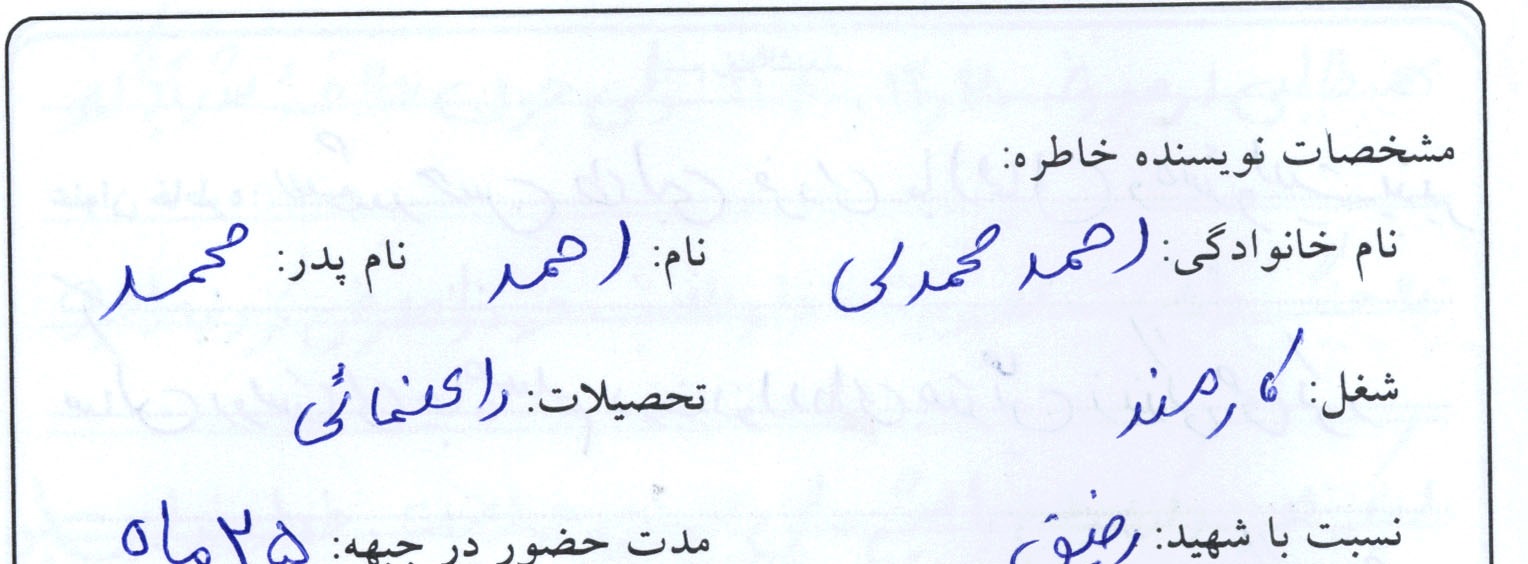 مشخصات نویسنده خاطره:
نام خانوادگی: احمد محمدی نام: احمد نام پدر: محمد
شغل: کارمند تحصیلات: راهنمائی
نسبت با شهید: رفیق مدت حضور در جبهه: ۲۵ ماه